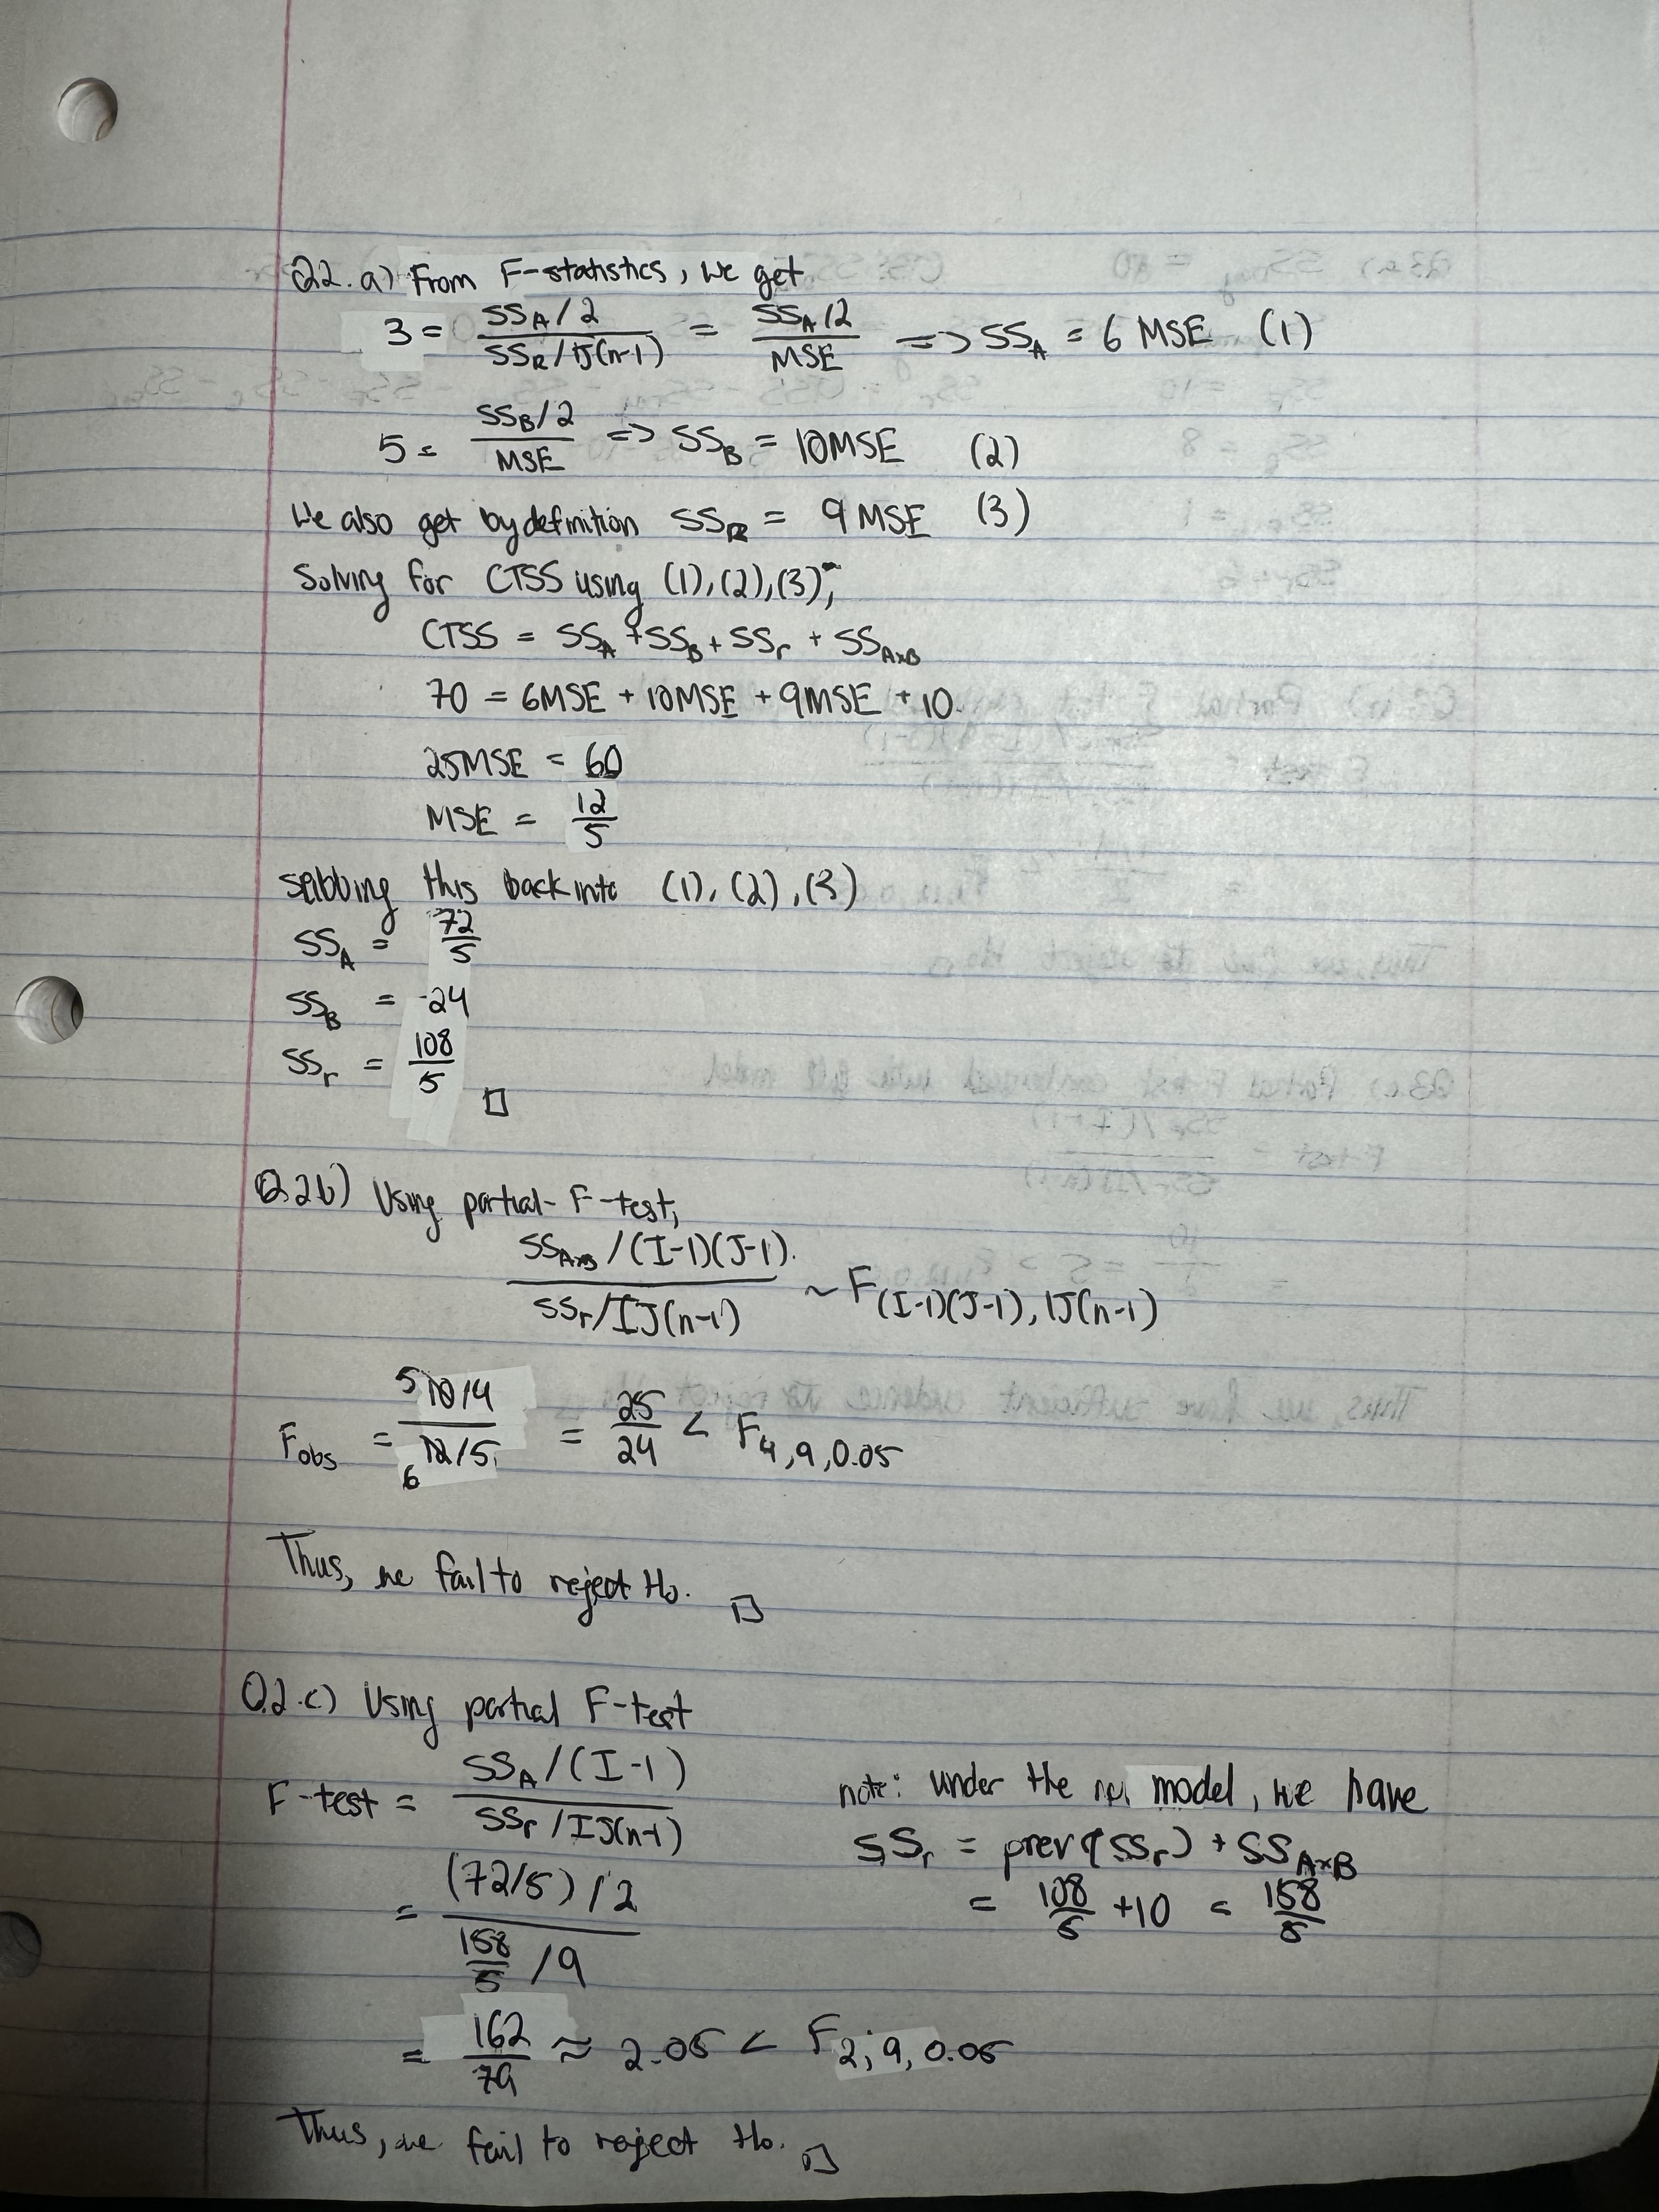 Q2. a) From F-statistics, we get
3 = (SS_A / 2) / (SS_R / IJ(n-1)) = (SS_A / 2) / MSE => SS_A = 6 MSE (1)
5 = (SS_B / 2) / MSE => SS_B = 10MSE (2)
We also get by definition SS_R = 9 MSE (3)
Solving for CTSS using (1), (2), (3),
CTSS = SS_A + SS_B + SS_r + SS_A×B
70 = 6MSE + 10MSE + 9MSE + 10.
25MSE = 60
MSE = 12/5
this back into (1), (2), (3)
SS_A = 72/5
SS_B = 24
SS_r = 108/5 □
Q.2b) Using partial-F-test,
(SS_A×B / (I-1)(J-1)) / (SS_r / IJ(n-1)) ~ F_(I-1)(J-1), IJ(n-1)
F_obs = (5 10/4) / (6 12/5) = 25/24 < F_4,9,0.05
Thus, we fail to reject H₀. □
Q.2.c) Using partial F-test
F-test = (SS_A / (I-1)) / (SS_r / IJ(n-1))
note: under the model, we have
SS_r = prev(SS_r) + SS_A×B
= 108/5 + 10 = 158/5
= ((72/5) / 2) / (158/5 / 9)
= 162/79 ≈ 2.05 < F_2,9,0.05
Thus, we fail to reject H₀. □